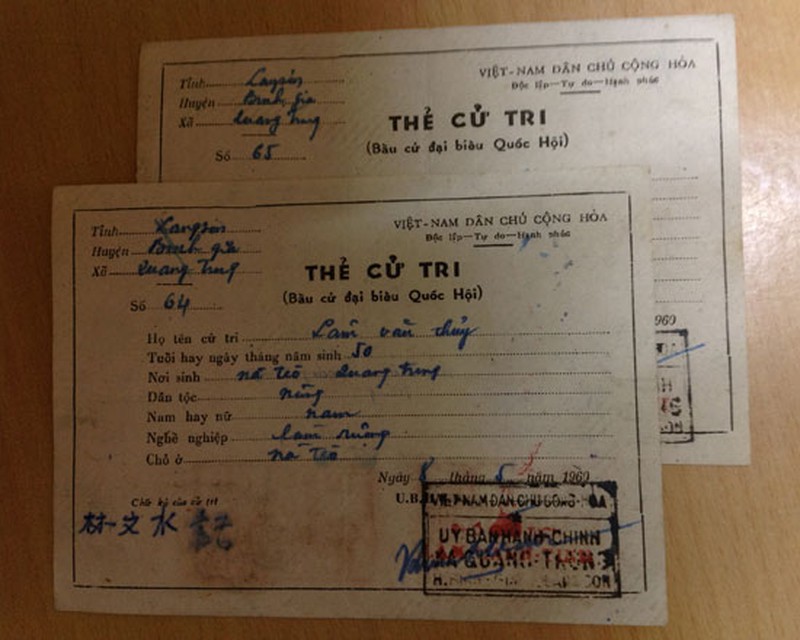 Tỉnh Lạng Sơn
Huyện Bình gia
Xã Quang Trung
Số 65
VIỆT-NAM DÂN CHỦ CỘNG HÒA
Độc lập—Tự do—Hạnh phúc
THẺ CỬ TRI
(Bầu cử đại biểu Quốc Hội)
960
Tỉnh Lạng Sơn
Huyện Bình gia
Xã Quang Trung
Số 64
VIỆT-NAM DÂN CHỦ CỘNG HÒA
Độc lập—Tự do—Hạnh phúc
THẺ CỬ TRI
(Bầu cử đại biểu Quốc Hội)
Họ tên cử tri Lâm văn thủy
Tuổi hay ngày tháng năm sinh 50
Nơi sinh nà Quang trung
Dân tộc nùng
Nam hay nữ nam
Nghề nghiệp làm ruộng
Chỗ ở nà
Ngày 8 tháng 5 năm 1960
U.B.
Chữ ký của cử tri
林文水 記
VIỆT NAM DÂN CHỦ CỘNG HÒA
ỦY BAN HÀNH CHÍNH
XÃ QUANG TRUNG